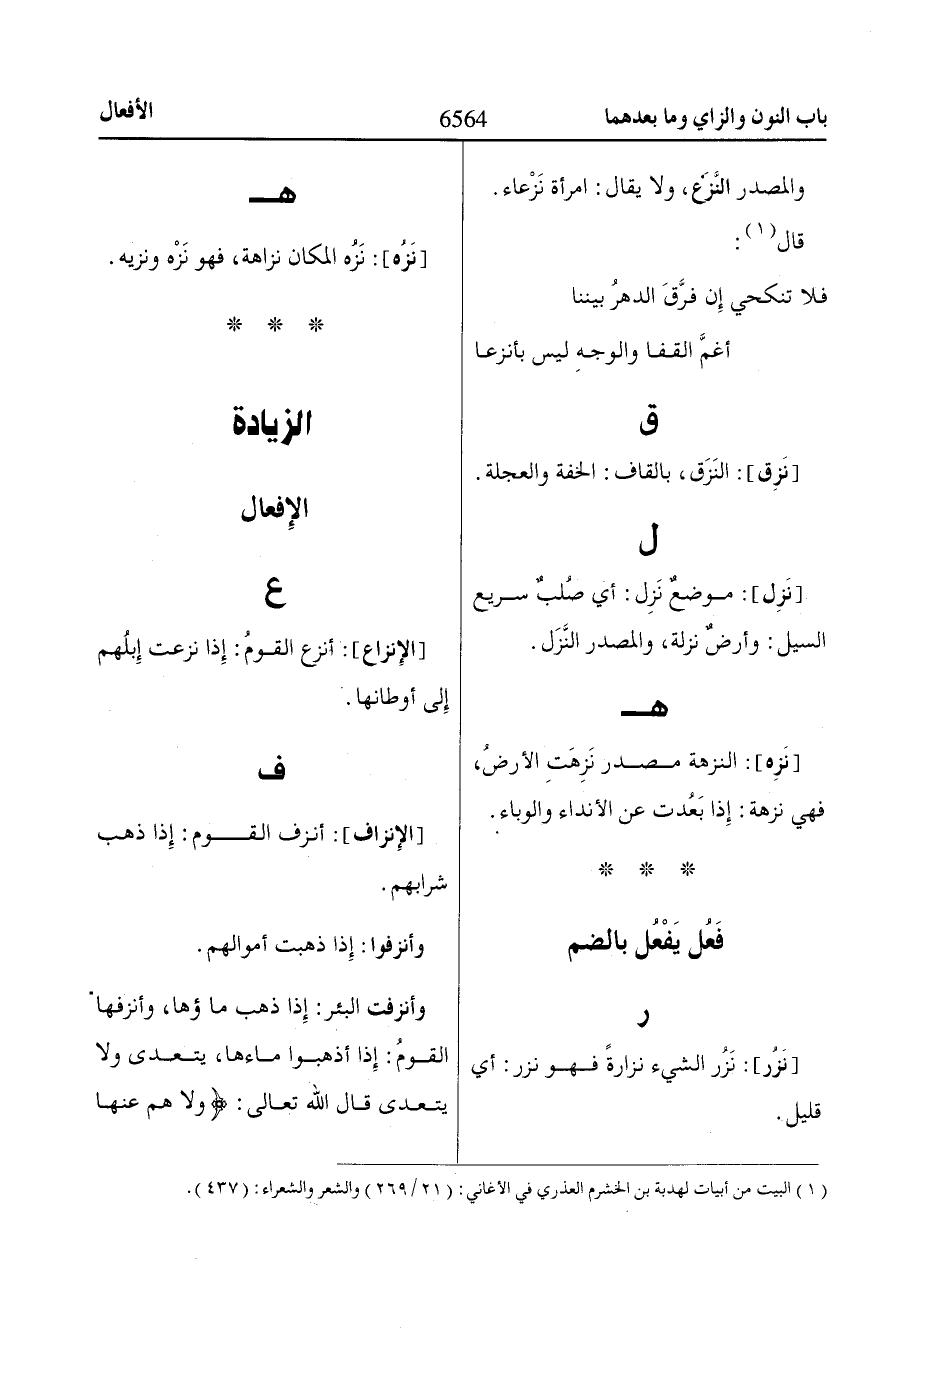 باب النون والزاي وما بعدهما
6564
الأفعال
والمصدر النَّزَع، ولا يقال: امرأة نَزْعاء.
قال(١):
فلا تنكحي إِن فرَّقَ الدهرُ بيننا
أغمَّ القفا والوجهِ ليس بأنزعا
ق
[نَزِق]: النَزَق، بالقاف: الخفة والعجلة.
ل
[نَزِل]: موضعٌ نَزِل: أي صُلبٌ سريع
السيل: وأرضٌ نزلة، والمصدر النَّزَل.
هـ
[نَزِه]: النزهة مصدر نَزِهَتِ الأرضُ،
فهي نزهة: إِذا بَعُدت عن الأنداء والوباء.
* * *
فَعُل يَفْعُل بالضم
ر
[نَزُر]: نَزُر الشيء نزارةً فهو نزر: أي
قليل.
هـ
[نَزُه]: نَزُه المكان نزاهة، فهو نَزْه ونزيه.
* * *
الزيادة
الإِفعال
ع
[الإِنزاع]: أنزع القومُ: إِذا نزعت إِبلُهم
إِلى أوطانها.
ف
[الإِنزاف]: أنزف القوم: إِذا ذهب
شرابهم.
وأنزفوا: إِذا ذهبت أموالهم.
وأنزفت البئر: إِذا ذهب ماؤها، وأنزفها
القومُ: إِذا أذهبوا ماءها، يتعدى ولا
يتعدى قال الله تعالى: ﴿ولا هم عنها
(١) البيت من أبيات لهدبة بن الخشرم العذري في الأغاني: (٢٦٩/٢١) والشعر والشعراء: (٤٣٧).